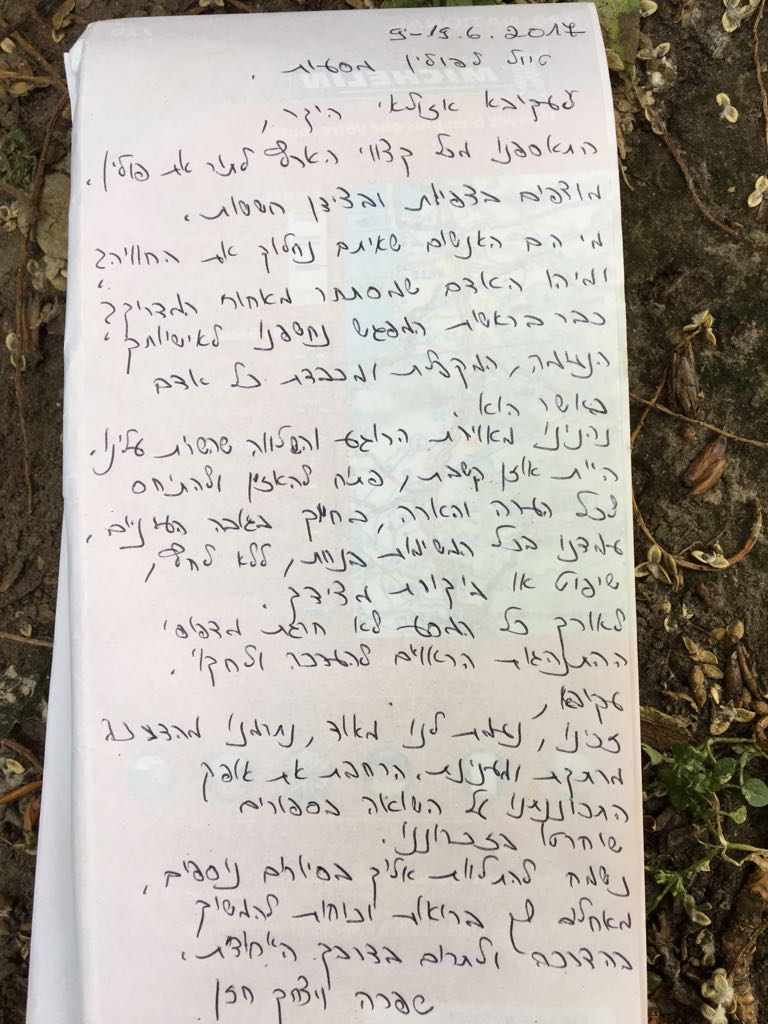 9-19.6.2017
טיול לפולין מסעות.
לעקיבא אזולאי היקר,
התאספנו מכל קצווי הארץ לתור את פולין.
מוצפים בצפיות ובצידן חששות.
מי הם האנשים שאיתם נחלוק את החוויה?
ומיהו האדם שמסתתר מאחורי המדריך?
כבר בראשית המפגש נחשפנו לאישיותך
הנעימה, המקבלת ומכבדת כל אדם
כאשר הוא.
נהנינו מאוירת הרוגע והשלווה שהשרת עלינו.
היית אוזן קשבת, פתוח להאזין ולהתיחס
לכל הערה והארה, בחיוך בגובה העיניים,
עמדנו בכל המשימות בנחת, ללא לחץ,
שיפוט או ביקורת מצידך.
לאורך כל המסע לא חרגת מדפוסי
ההתנהגות הראויים להערכה ולחקוי.
עקיבא,
זכינו, נעמת לנו מאוד, נתרמנו מהדרכה
מרתקת ומעניינת. הרחבת את אופק
התבוננותנו על השואה בספורים
שיחרטו בזכרוננו.
נשמח להתלוות אליך בסיורים נוספים,
מאחלים לך בריאות וכוחות להמשיך
בהדרכה ולתרום בדרכך הייחודית.
שפרה ויצחק חזן
MICHELIN